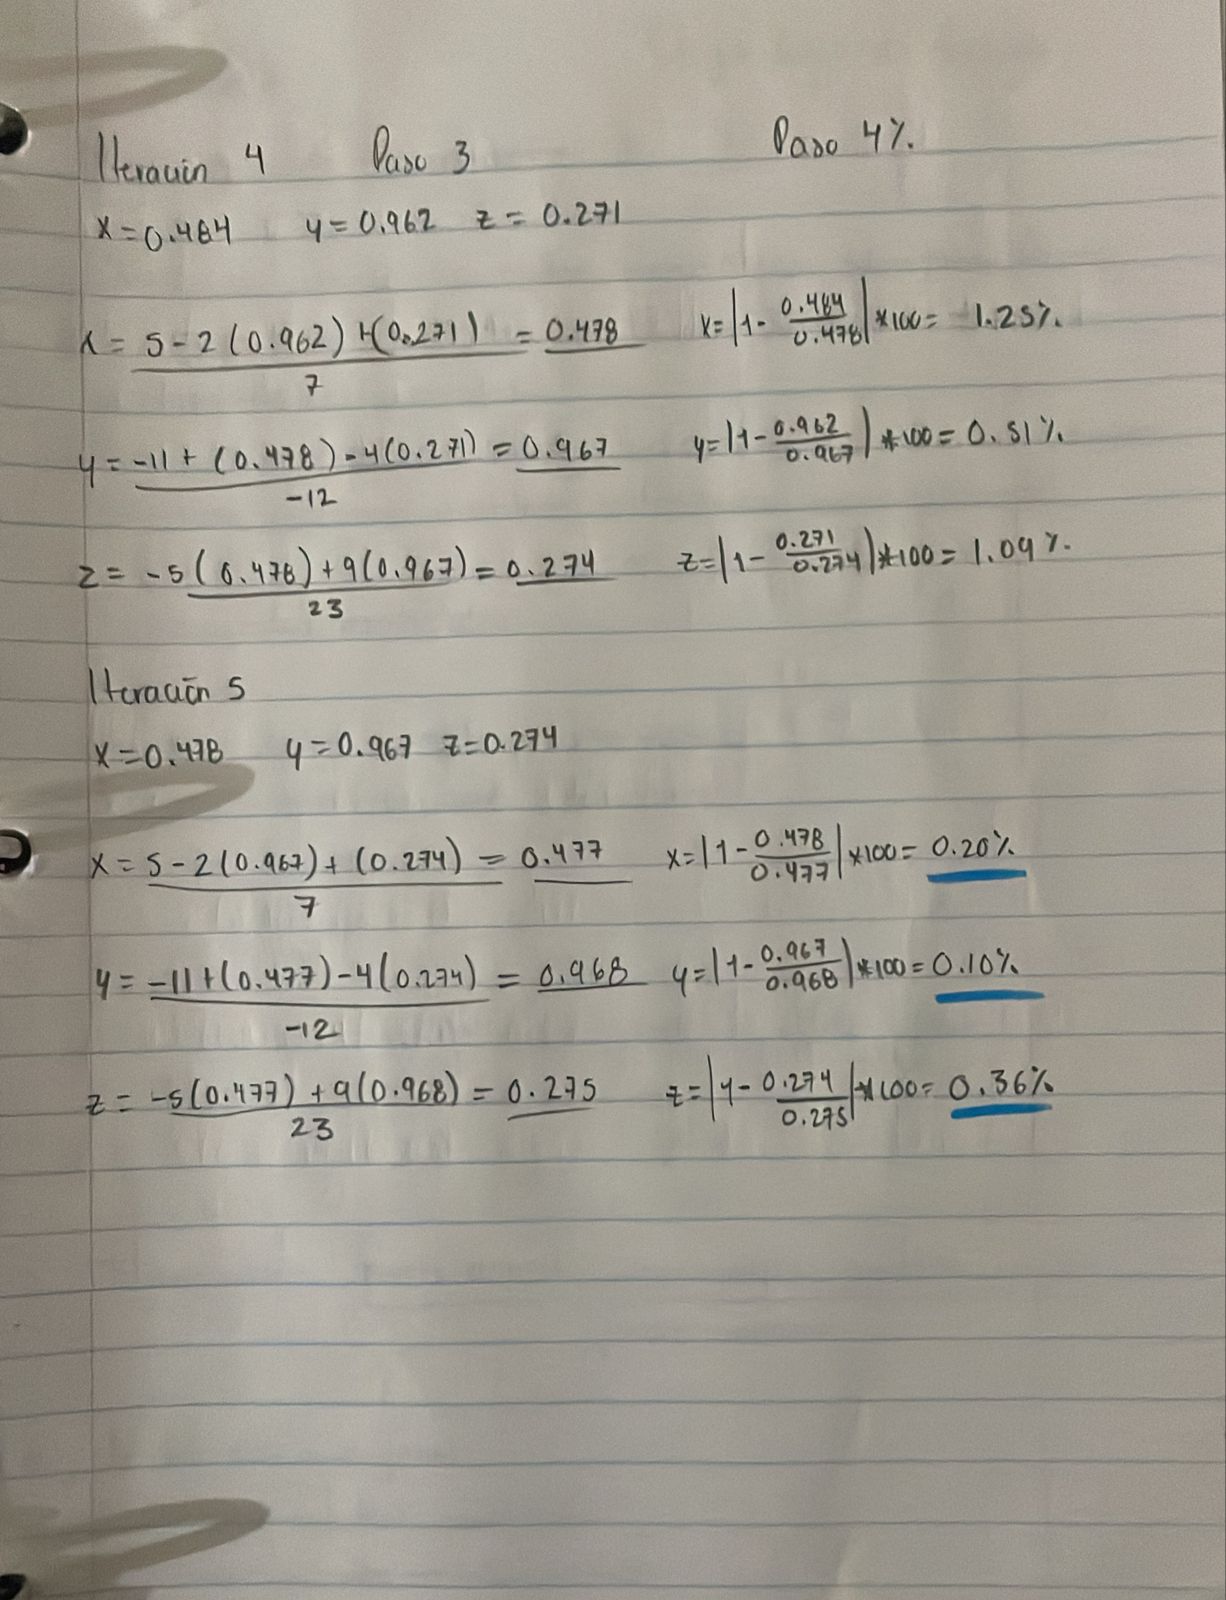 Iteración 4 Paso 3 Paso 4%.
x=0.484 y=0.962 z=0.271
x = 5-2(0.962)+(0.271) = 0.478 x=|1- 0.484/0.478|*100= 1.25%
7
y = -11+(0.478)-4(0.271) = 0.967 y=|1- 0.962/0.967|*100= 0.51%
-12
z = -5(0.478)+9(0.967) = 0.274 z=|1- 0.271/0.274|*100= 1.09%
23
Iteración 5
x=0.478 y=0.967 z=0.274
x = 5-2(0.967)+(0.274) = 0.477 x=|1- 0.478/0.477|*100= 0.20%
7
y = -11+(0.477)-4(0.274) = 0.968 y=|1- 0.967/0.968|*100= 0.10%
-12
z = -5(0.477)+9(0.968) = 0.275 z=|1- 0.274/0.275|*100= 0.36%
23